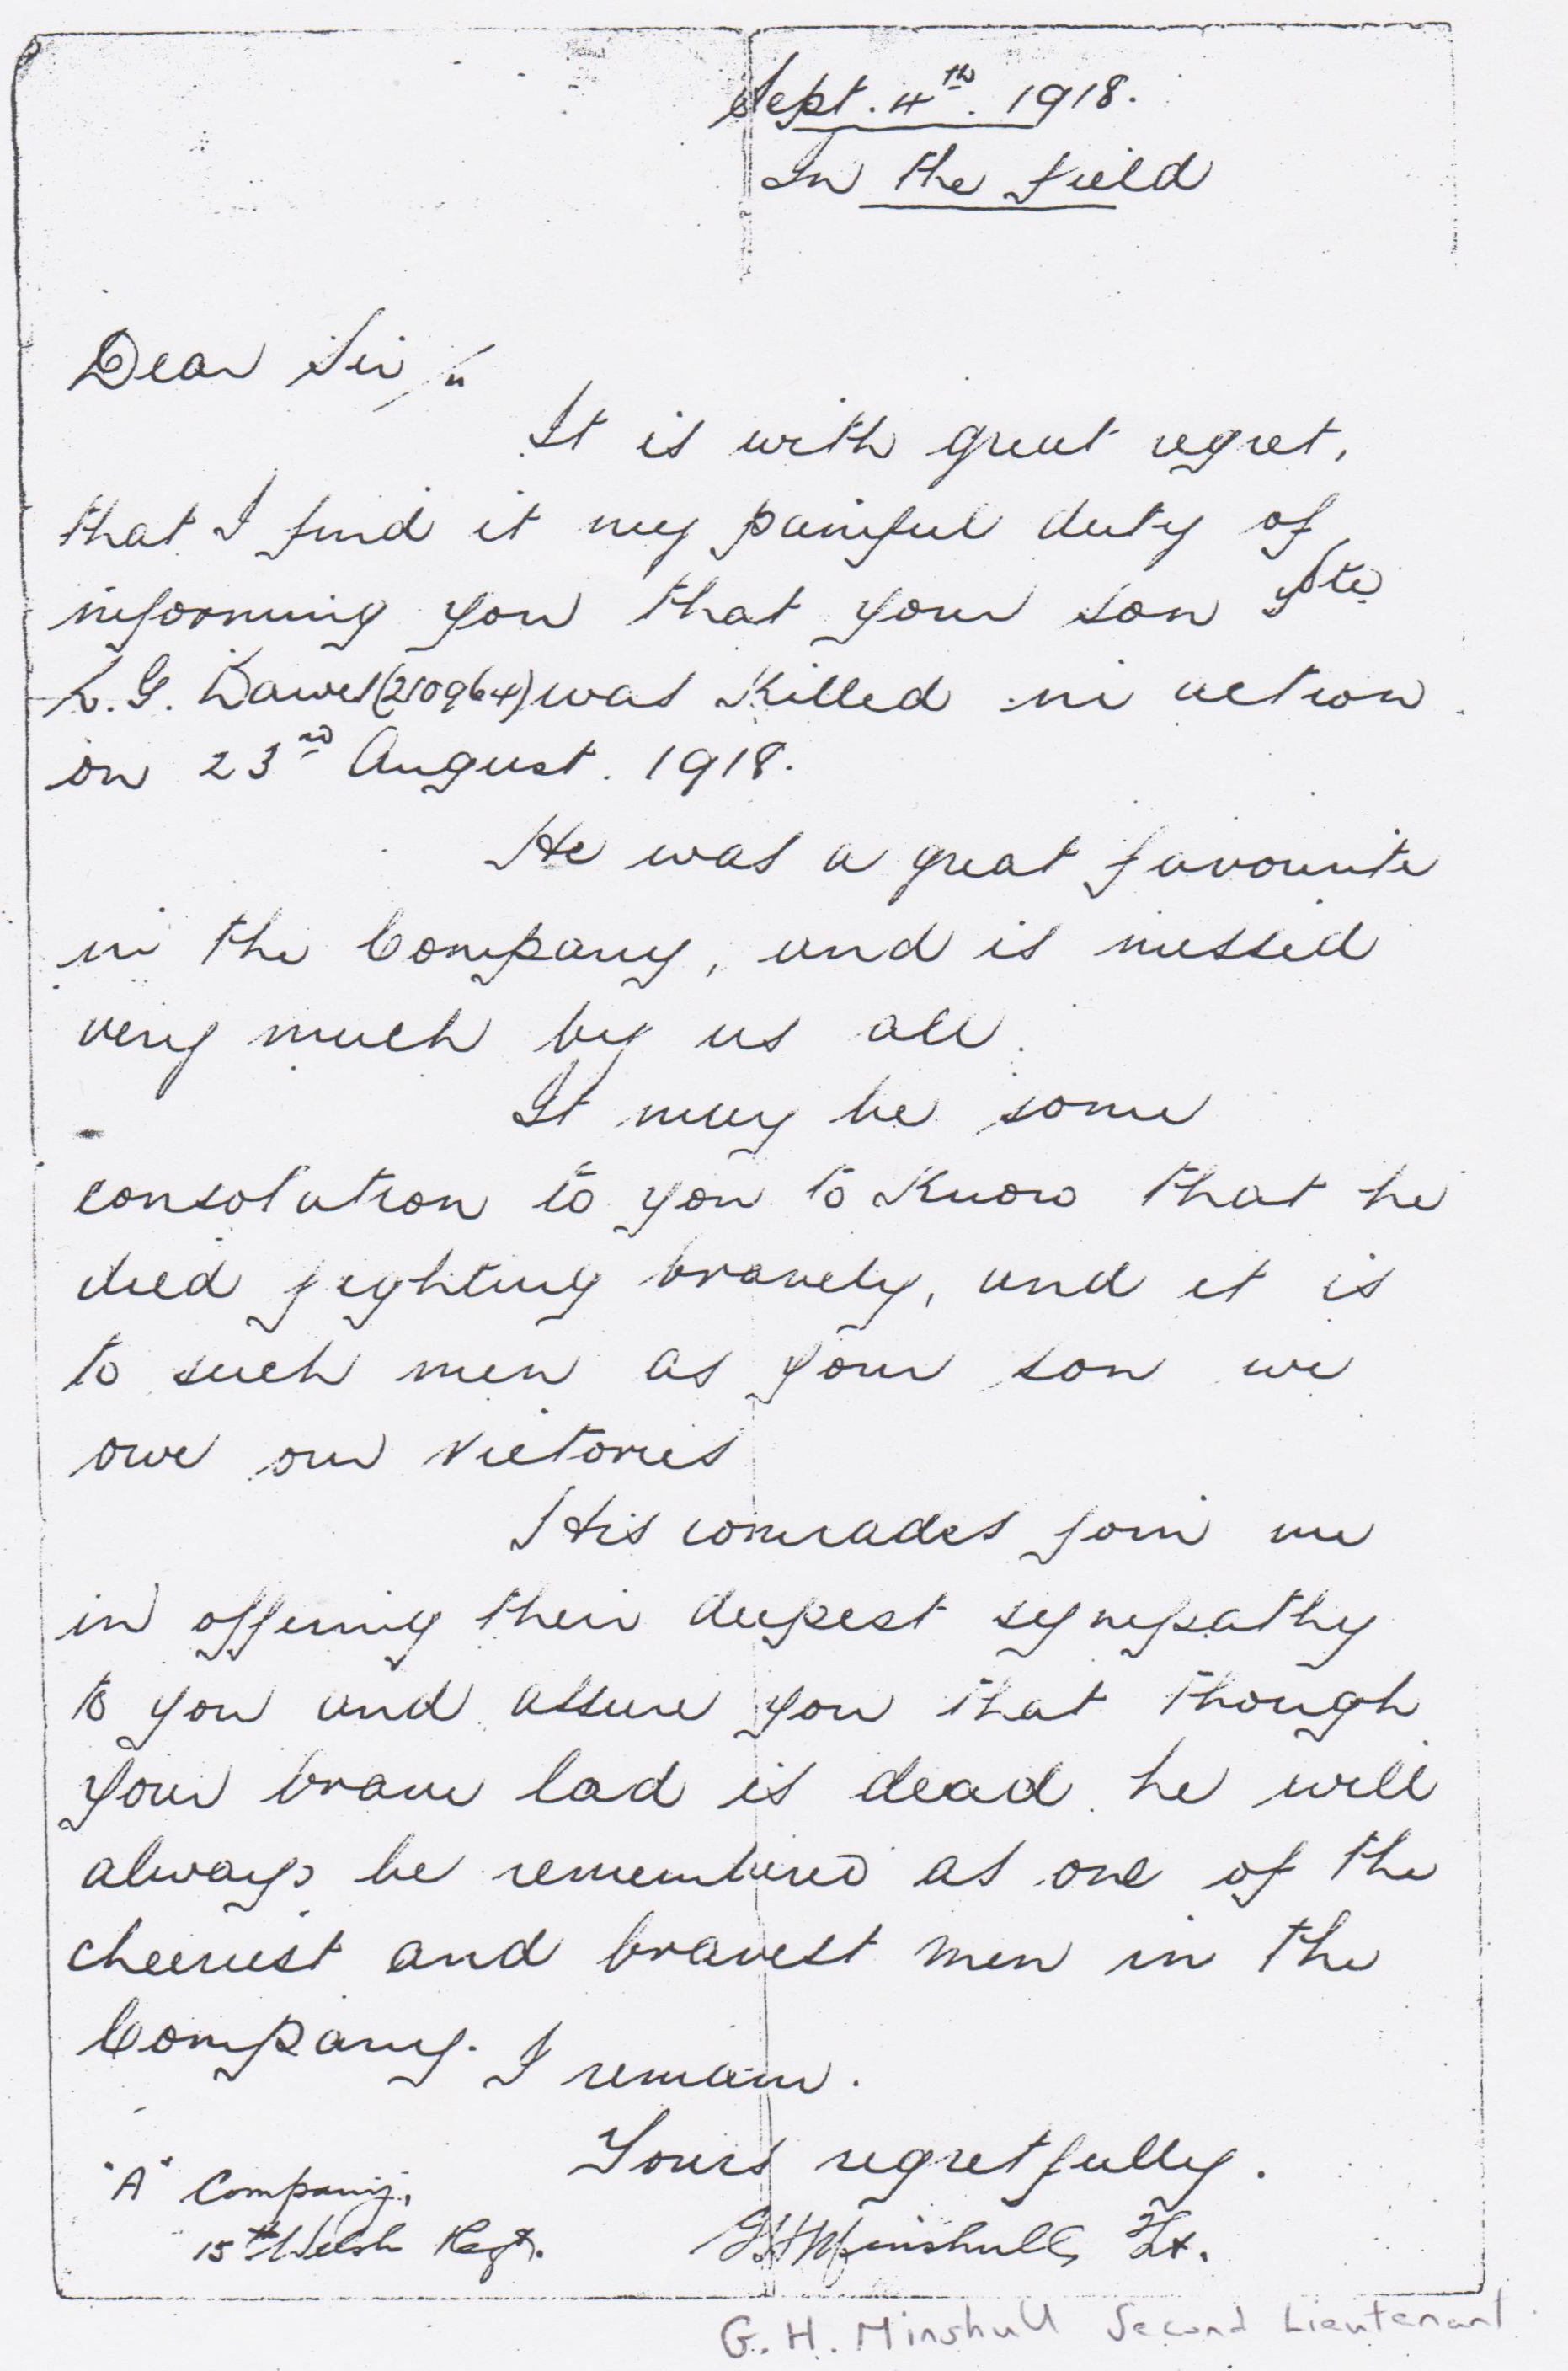 Sept. 4th. 1918.
In the field
Dear Sir/"
It is with great regret,
that I find it my painful duty of
informing you that your son Pte
L. G. Dawes (210964) was killed in action
on 23rd August. 1918.
He was a great favourite
in the Company, and is missed
very much by us all.
It may be some
consolation to you to know that he
died fighting bravely, and it is
to such men as your son we
owe our victories
His comrades join me
in offering their deepest sympathy
to you and assure you that though
your brave lad is dead he will
always be remembered as one of the
cheeriest and bravest men in the
Company. I remain.
Yours regretfully.
"A" Company,
15th Welsh Regt.
GHMinshull Lt.
G. H. Minshull Second Lieutenant